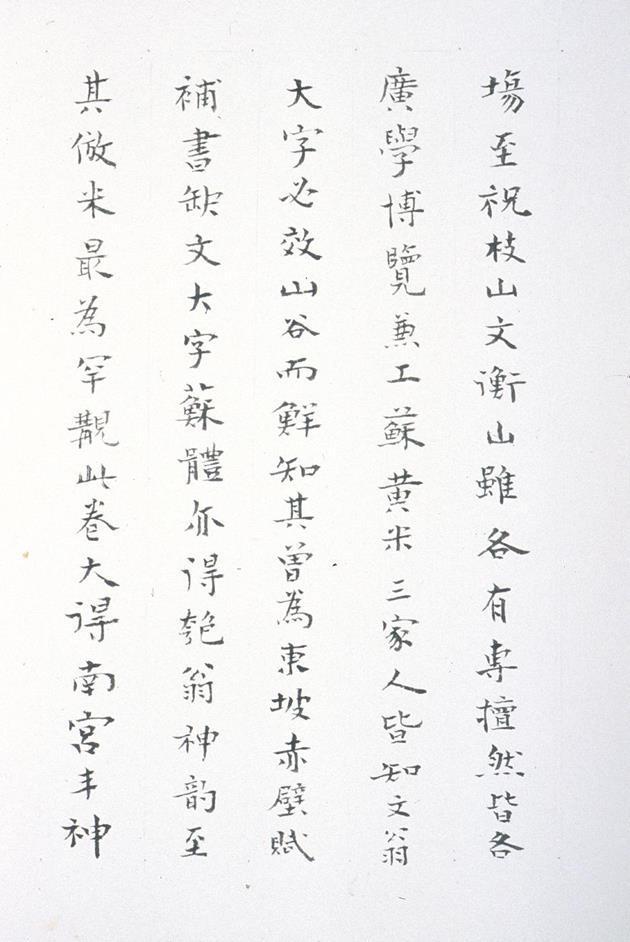 塲至祝枝山文衡山雖各有專擅然皆各
廣學博覽兼工蘇黃米三家人皆知文翁
大字必效山谷而鮮知其曾為東坡赤壁賦
補書缺文大字蘇體亦得匏翁神韵至
其倣米最為罕覯此卷大得南宮丰神